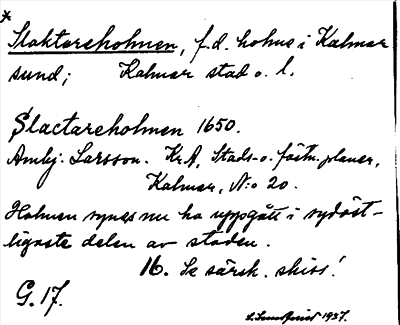 *
Slaktareholmen, f.d. holme i Kalmar
sund; Kalmar stad o. l.
Slactareholmen 1650.
Ambj. Larsson. Kr.A, Stads- o. fästn.planer,
Kalmar, N:o 20.
Holmen synes nu ha uppgått i sydöst-
ligaste delen av staden.
16. Se särsk. skiss!
G. 17.
S. Lundqvist 1937.